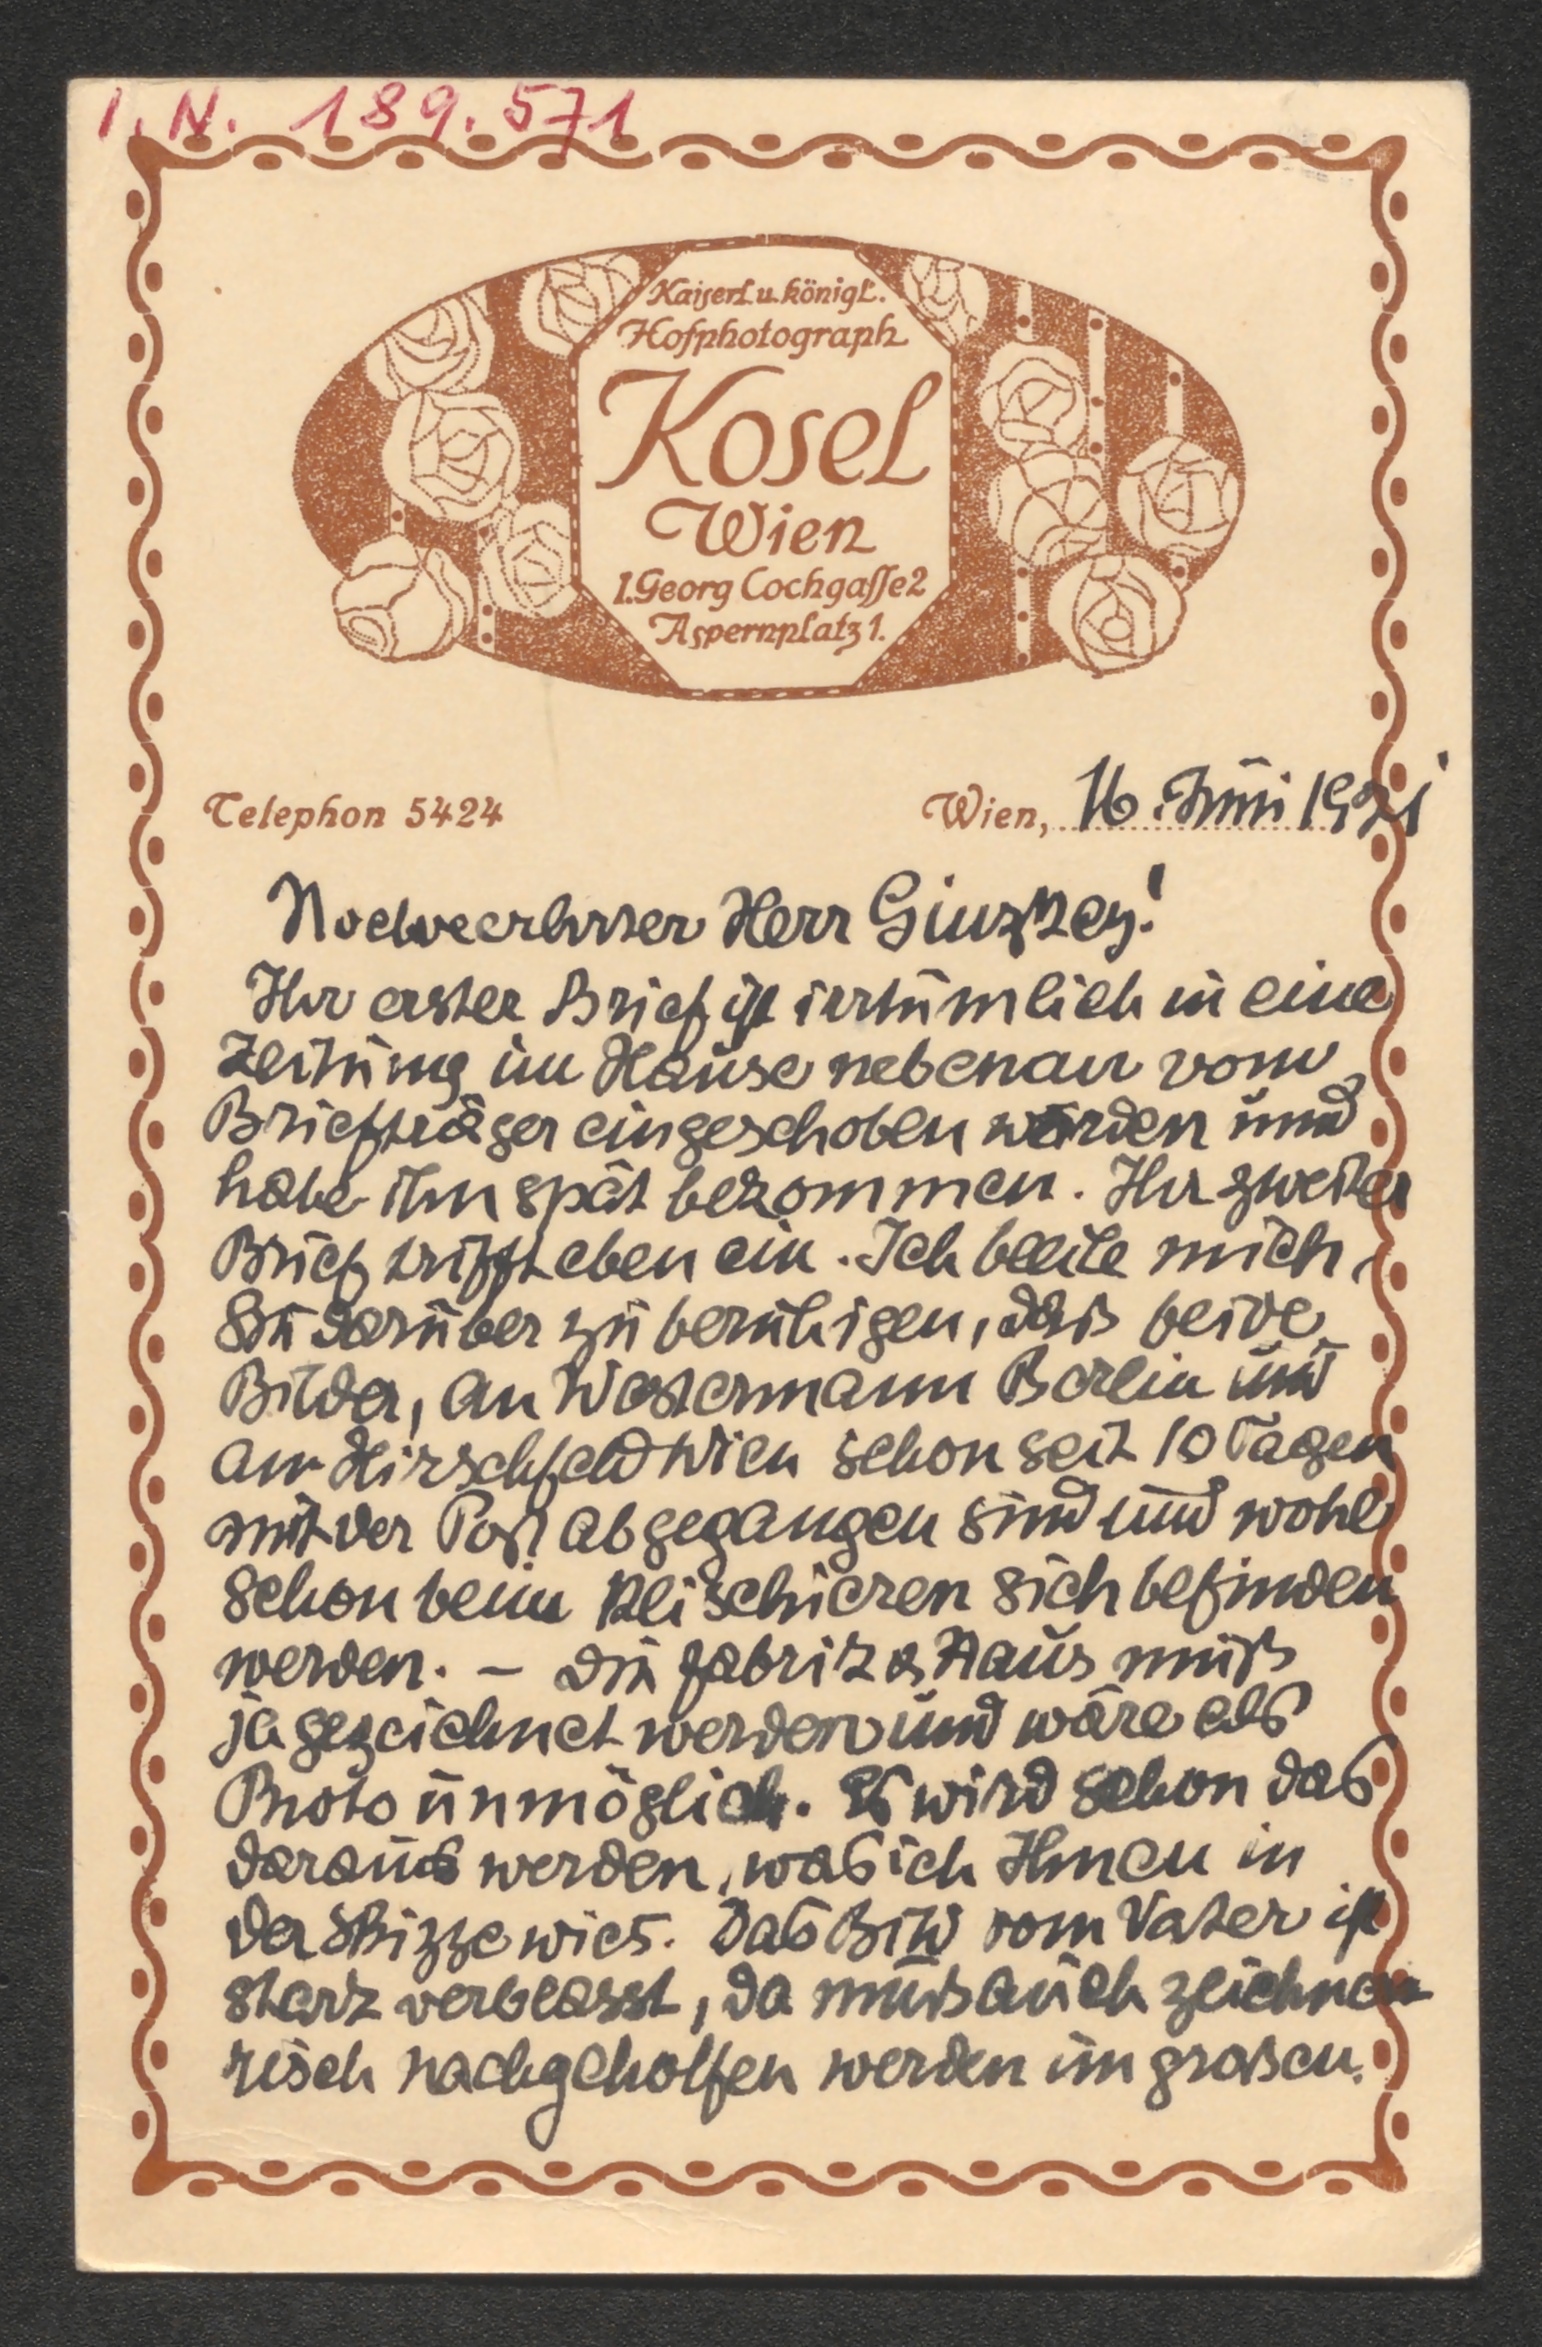 I. N. 189.571
Kaiserl. u. königl.
Hofphotograph
Kosel
Wien
I. Georg Cochgasse 2
Aspernplatz 1.
Telephon 5424
Wien, 16. Juni 1921
Hochverehrter Herr Ginzkey!
Ihr erster Brief ist irrtümlich in eine
Zeitung im Hause nebenan vom
Briefträger eingeschoben worden und
habe ihn spät bekommen. Ihr zweiter
Brief trifft eben ein. Ich beeile mich,
Sie darüber zu beruhigen, dass beide
Bilder, an Westermann Berlin und
an Hirschfeld Wien schon seit 10 Tagen
mit der Post abgegangen sind und wohl
schon beim Klischieren sich befinden
werden. – Die Fabrik & Haus muß
ja gezeichnet werden und wäre als
Photo unmöglich. Es wird schon das
daraus werden, was ich Ihnen in
der Skizze wies. Das Bild vom Vater ist
stark verblasst, da muß auch zeichne-
risch nachgeholfen werden im grosen.